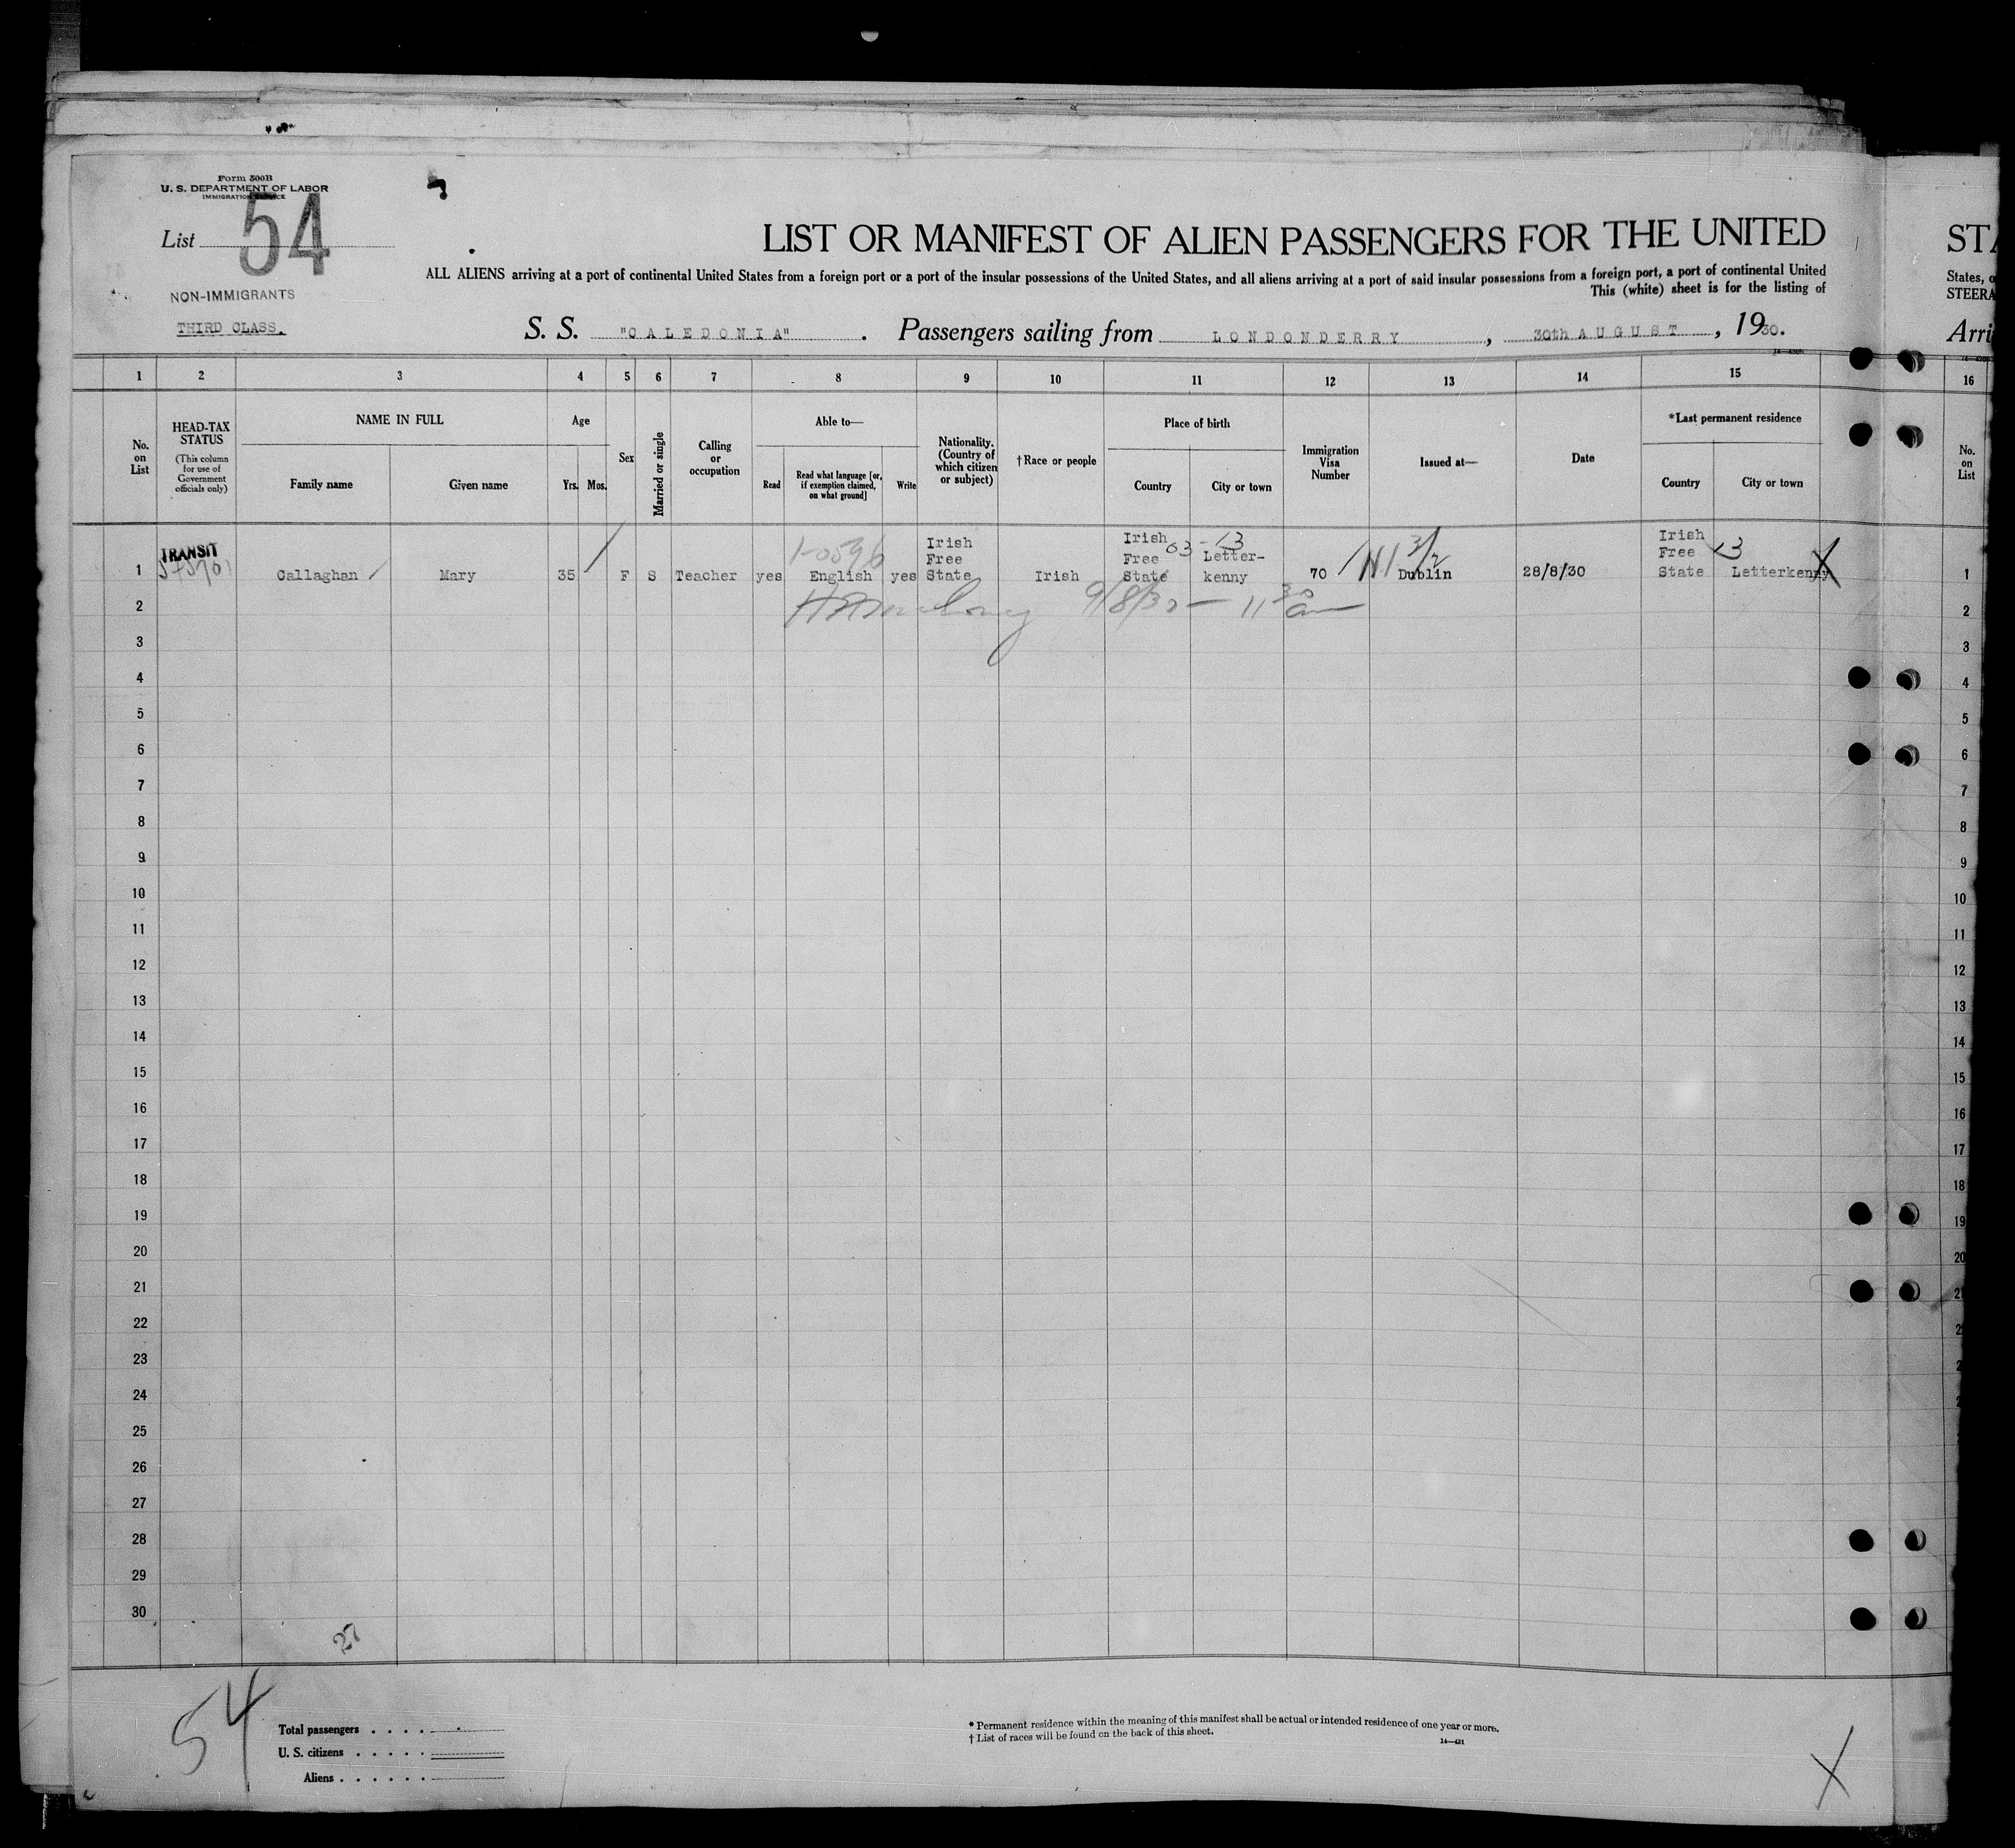 Form 500B
U. S. DEPARTMENT OF LABOR
IMMIGRATION SERVICE
List 54
LIST OR MANIFEST OF ALIEN PASSENGERS FOR THE UNITED
STA
ALL ALIENS arriving at a port of continental United States from a foreign port or a port of the insular possessions of the United States, and all aliens arriving at a port of said insular possessions from a foreign port, a port of continental United
States, o
NON-IMMIGRANTS
This (white) sheet is for the listing of
STEERA
THIRD CLASS.
S. S. "CALEDONIA". Passengers sailing from LONDONDERRY, 30th AUGUST, 1930.
Arri
1 2 3 4 5 6 7 8 9 10 11 12 13 14 15 16
No. on List
HEAD-TAX STATUS
(This column for use of Government officials only)
NAME IN FULL
Family name
Given name
Age
Yrs. Mos.
Sex
Married or single
Calling or occupation
Able to—
Read
Read what language [or, if exemption claimed, on what ground]
Write
Nationality. (Country of which citizen or subject)
†Race or people
Place of birth
Country
City or town
Immigration Visa Number
Issued at—
Date
*Last permanent residence
Country
City or town
No. on List
TRANSIT
1 Callaghan Mary 35 F S Teacher yes English yes Irish Free State Irish Irish Free State Letter-kenny 70 Dublin 28/8/30 Irish Free State Letterkenny 1
03 - 13
3/2
13
X
9/8/30 — 11 30 am
2 2
3 3
4 4
5 5
6 6
7 7
8 8
9 9
10 10
11 11
12 12
13 13
14 14
15 15
16 16
17 17
18 18
19 19
20 20
21 21
22
23
24
25
26
27
28
29
30
27
54
Total passengers . . . .
U. S. citizens . . . . .
Aliens . . . . . .
* Permanent residence within the meaning of this manifest shall be actual or intended residence of one year or more.
† List of races will be found on the back of this sheet.
14—431
X